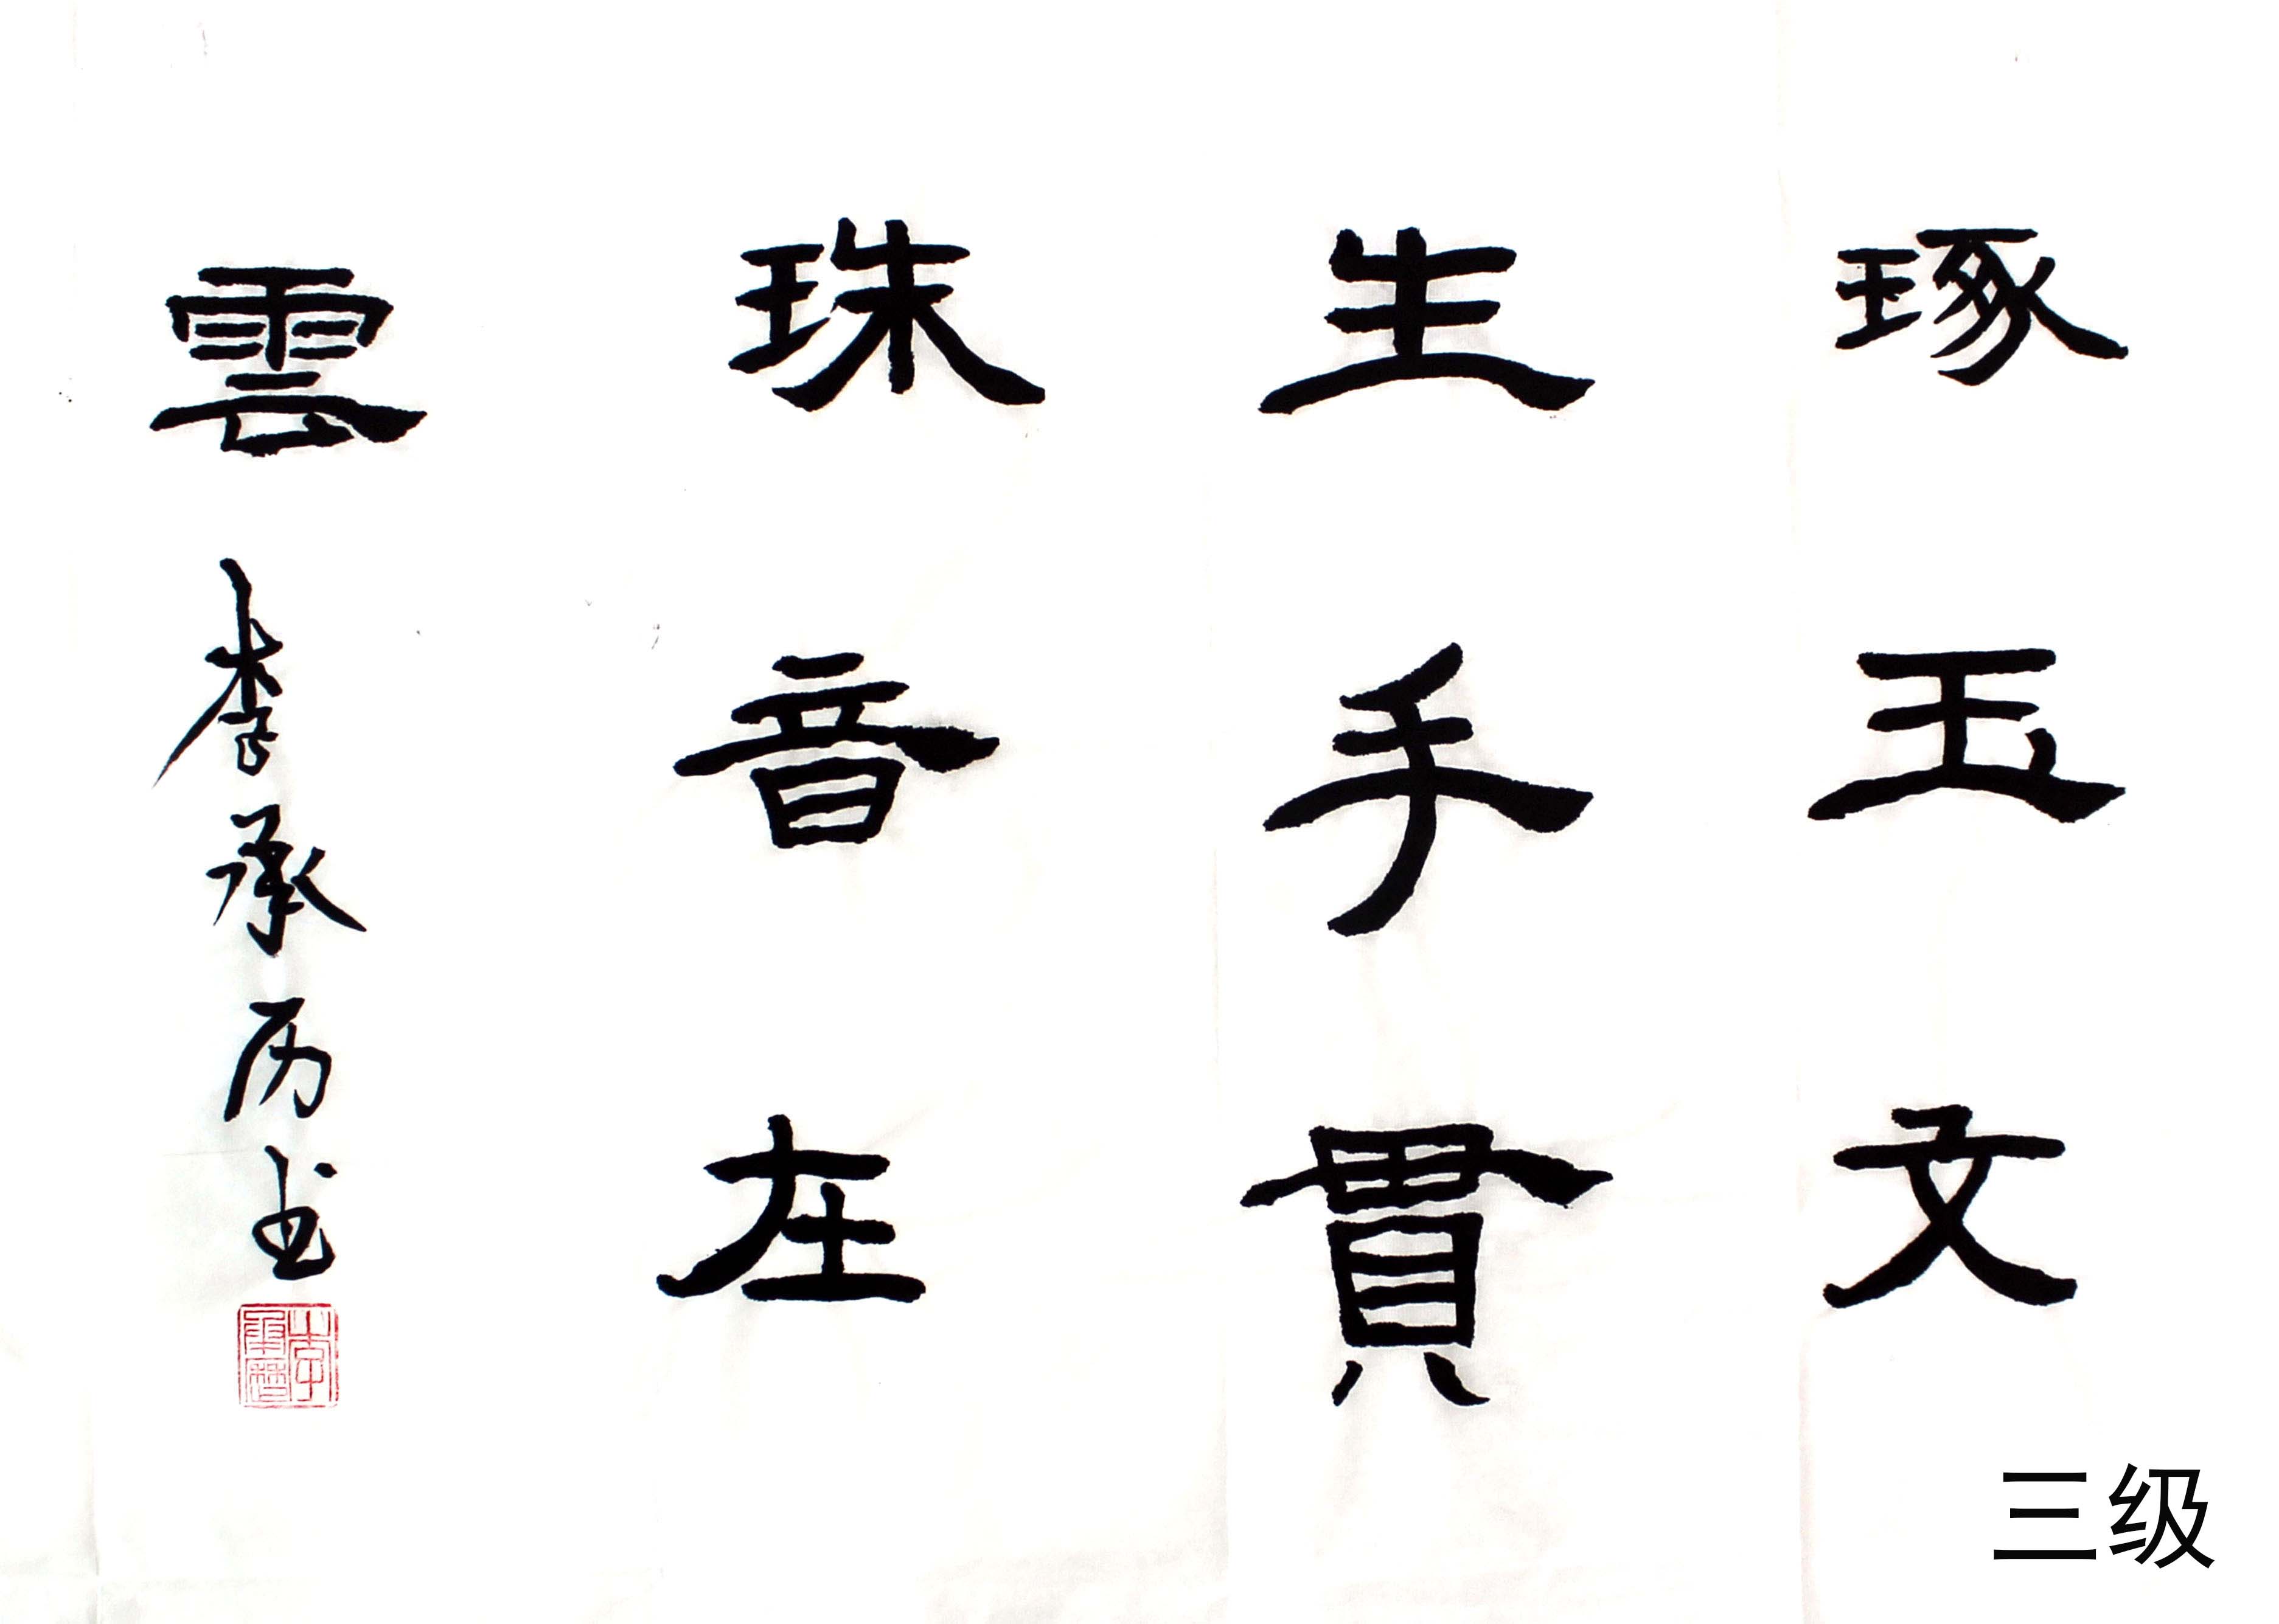 琢玉文
生手貫
珠音在
雲
李承历书
李承曆
三级